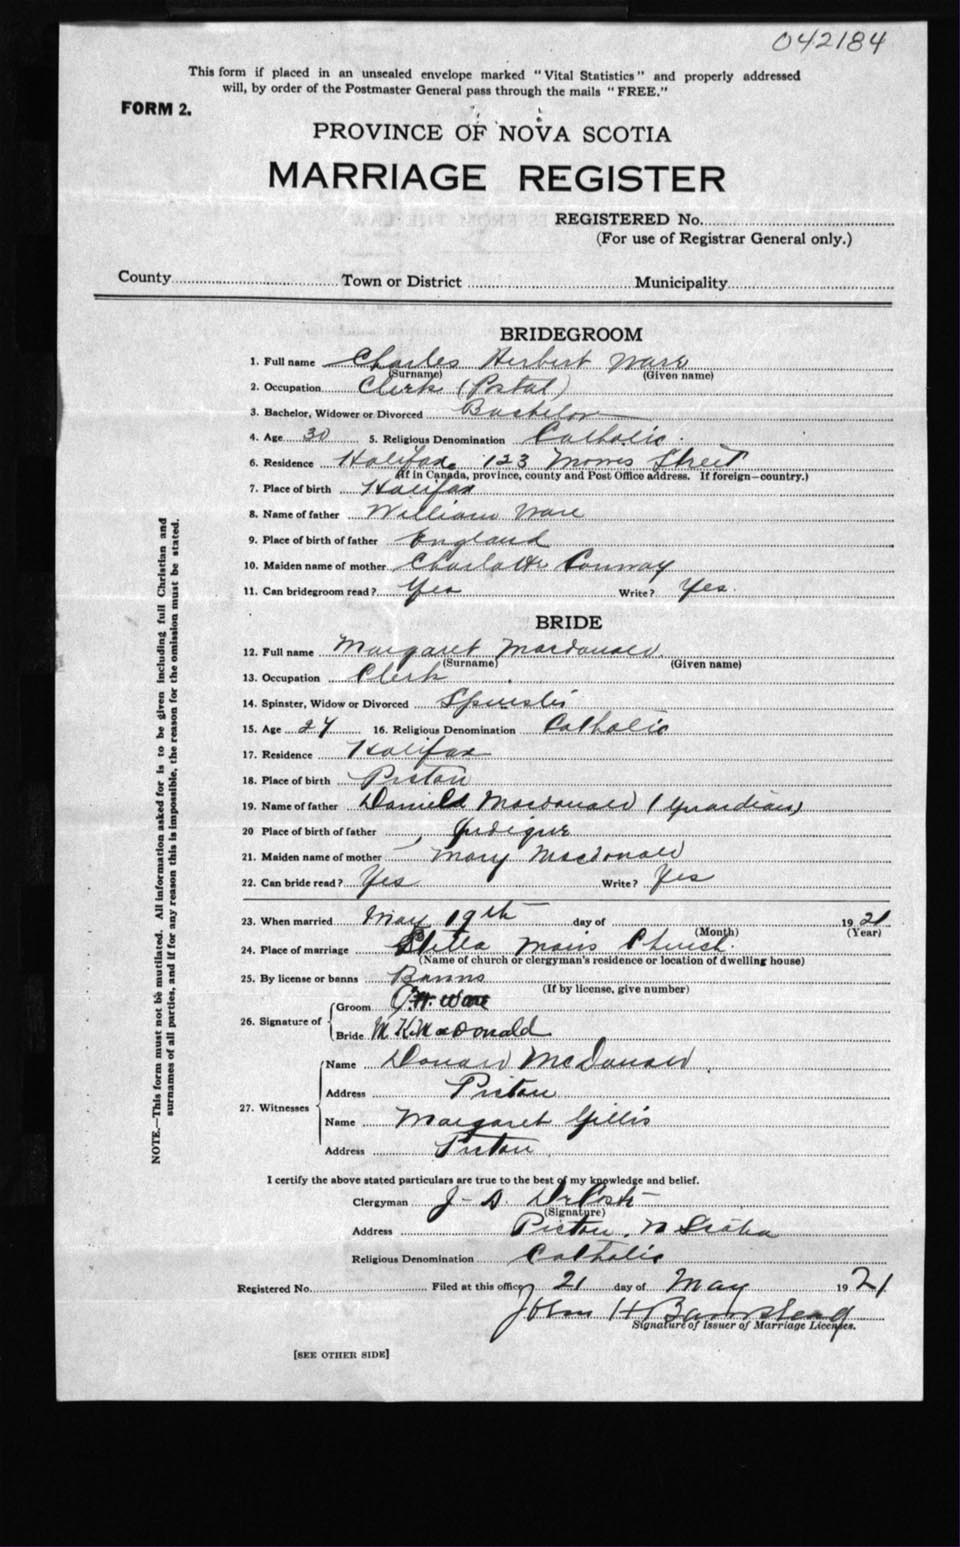 042184
This form if placed in an unsealed envelope marked "Vital Statistics" and properly addressed
will, by order of the Postmaster General pass through the mails "FREE."
FORM 2.
PROVINCE OF NOVA SCOTIA
MARRIAGE REGISTER
REGISTERED No.
(For use of Registrar General only.)
County Town or District Municipality
BRIDEGROOM
1. Full name Charles Herbert Ware
(Surname) (Given name)
2. Occupation Clerk (Postal)
3. Bachelor, Widower or Divorced Bachelor
4. Age 30 5. Religious Denomination Catholic.
6. Residence Halifax 123 Morris Street
(If in Canada, province, county and Post Office address. If foreign—country.)
7. Place of birth Halifax
8. Name of father William Ware
9. Place of birth of father England
10. Maiden name of mother Charlotte Conway
11. Can bridegroom read? Yes Write? Yes.
BRIDE
12. Full name Margaret Macdonald
(Surname) (Given name)
13. Occupation Clerk
14. Spinster, Widow or Divorced Spinster
15. Age 27 16. Religious Denomination Catholic
17. Residence Halifax
18. Place of birth Pictou
19. Name of father Daniel Macdonald (Guardian)
20 Place of birth of father
21. Maiden name of mother Mary Macdonald
22. Can bride read? Yes Write? Yes
23. When married May 19th day of 1921
(Month) (Year)
24. Place of marriage Stella Maris Church.
(Name of church or clergyman's residence or location of dwelling house)
25. By license or banns Banns
(If by license, give number)
26. Signature of
Groom C.H. Ware
Bride M. K. MacDonald
27. Witnesses
Name Donald McDonald
Address Pictou
Name Margaret Gillis
Address Pictou
I certify the above stated particulars are true to the best of my knowledge and belief.
Clergyman J. D.
(Signature)
Address Pictou, N Scotia
Religious Denomination Catholic
Registered No. Filed at this office 21 day of May 1921
John H Barnstead
Signature of Issuer of Marriage Licenses.
[SEE OTHER SIDE]
NOTE.—This form must not be mutilated. All information asked for is to be given including full Christian and
surnames of all parties, and if for any reason this is impossible, the reason for the omission must be stated.